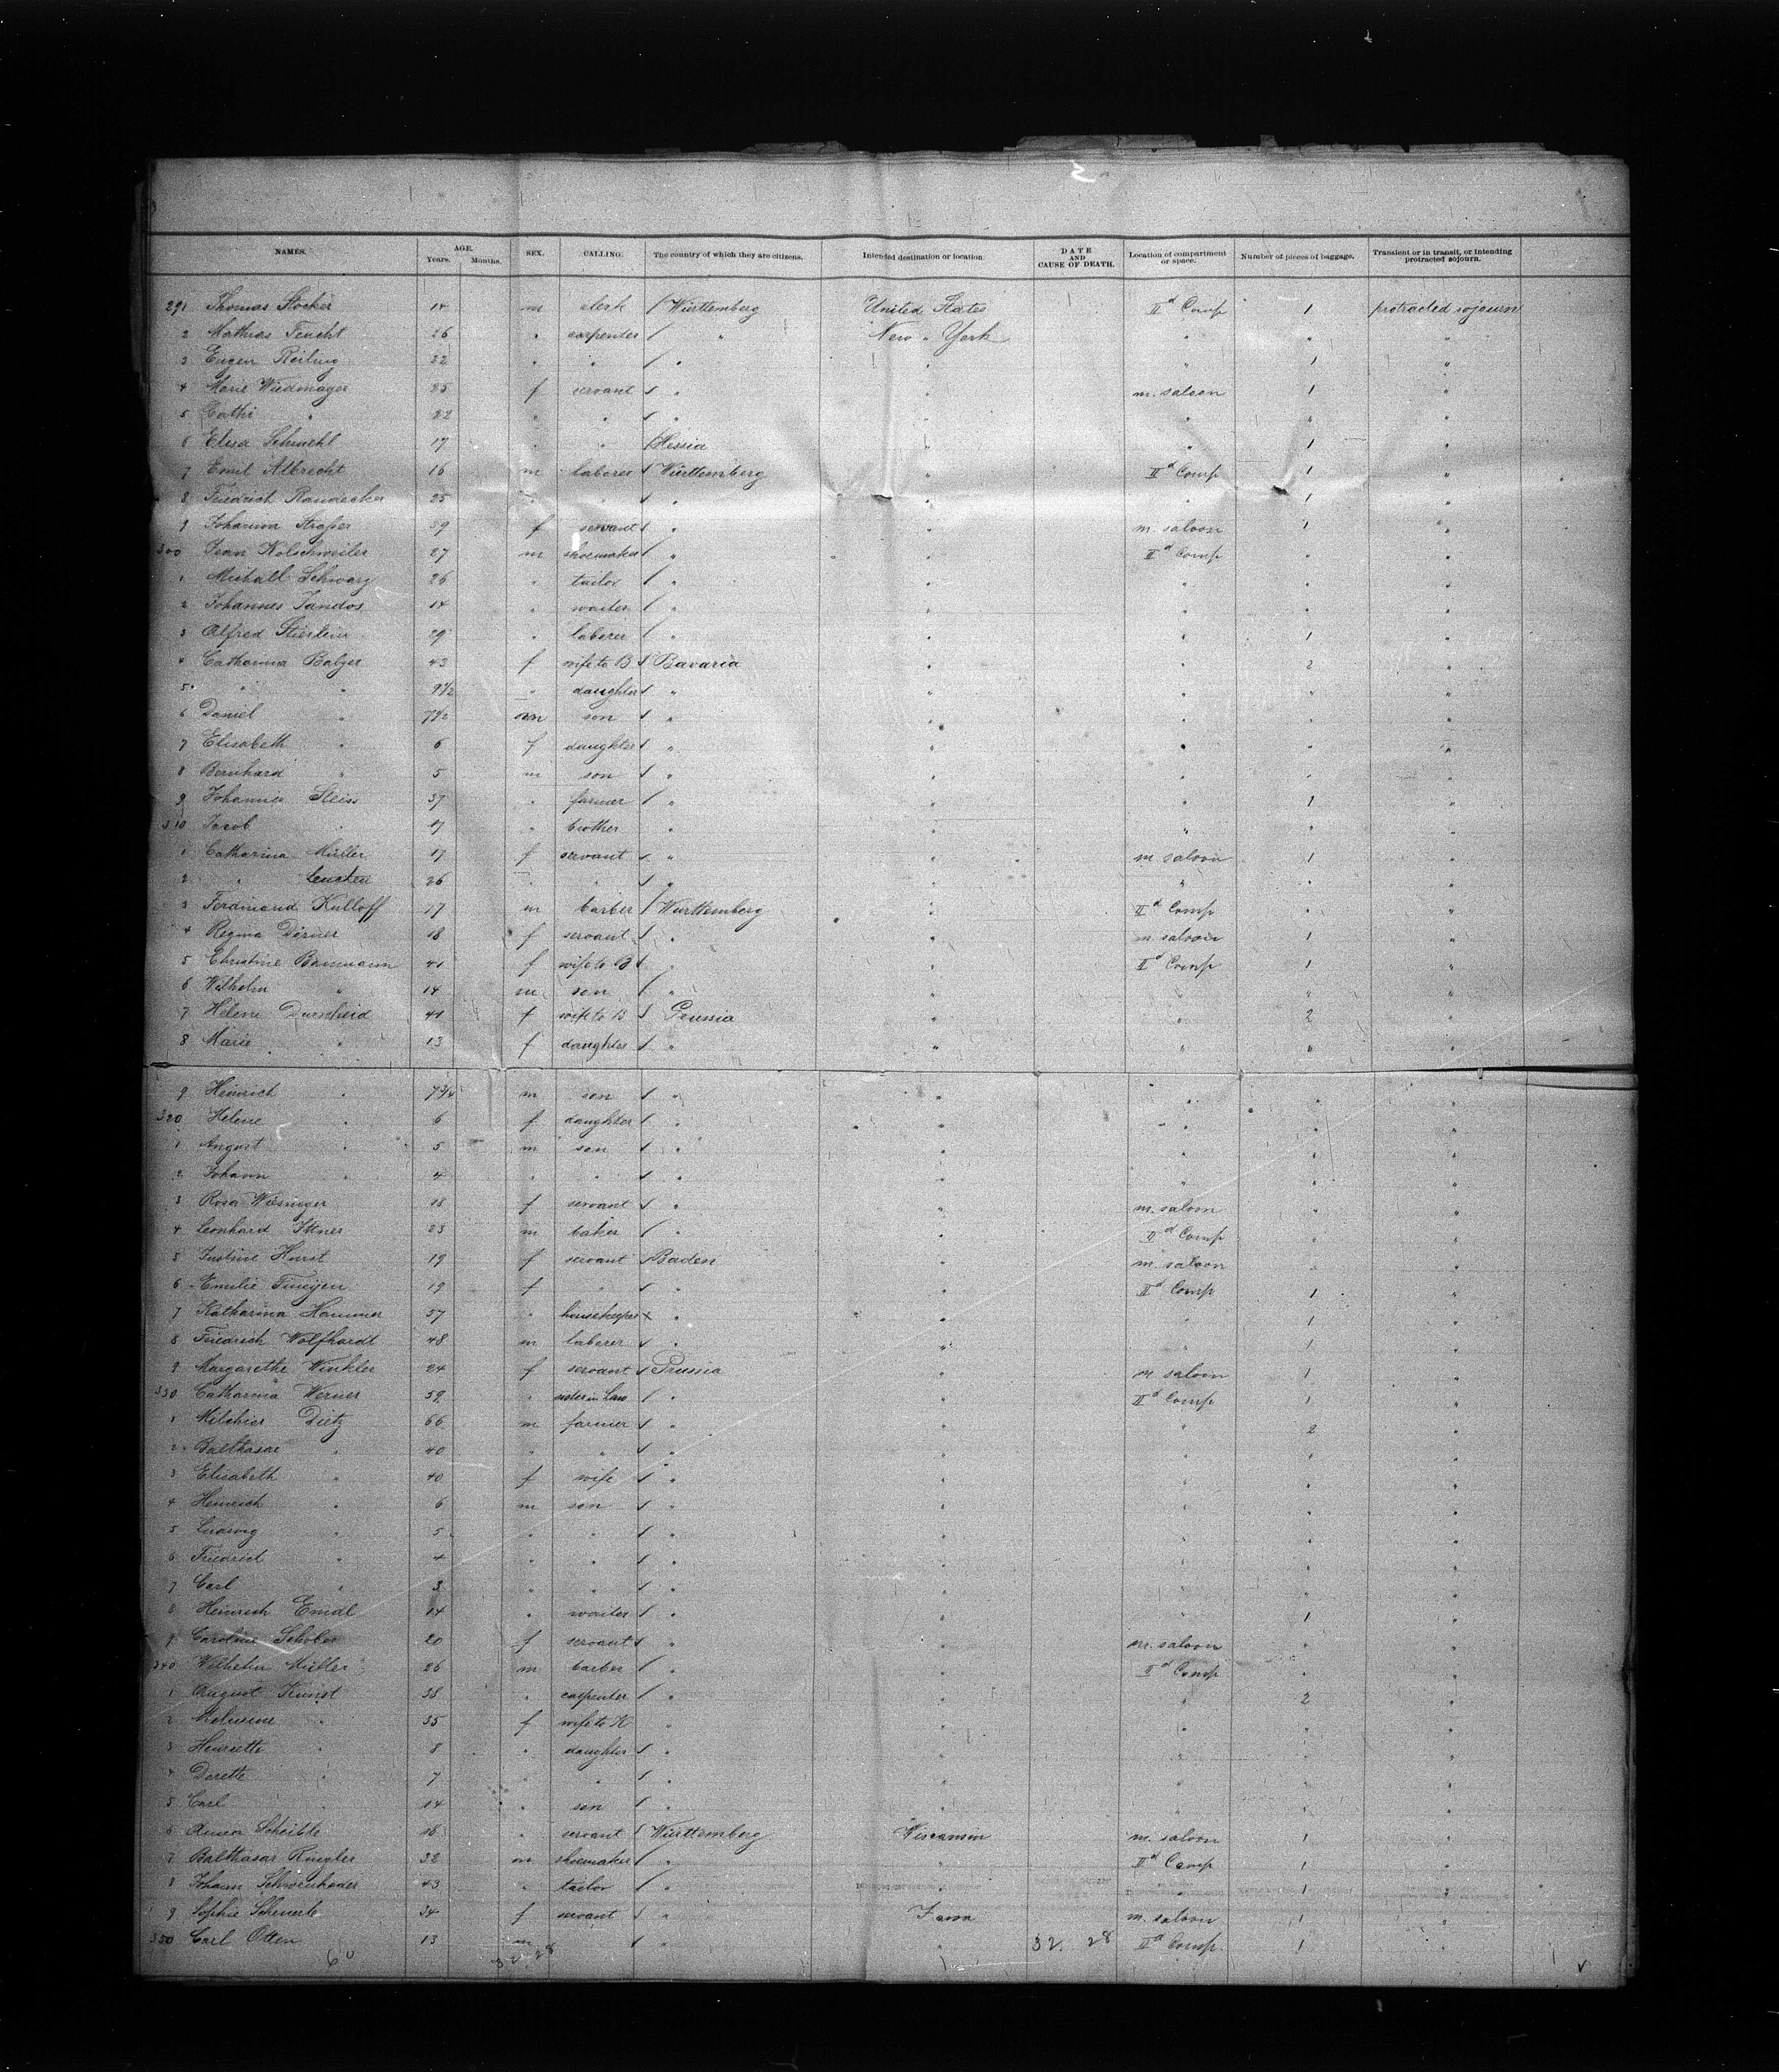 NAMES. AGE. Years. Months. SEX. CALLING. The country of which they are citizens. Intended destination or location. DATE AND CAUSE OF DEATH. Location of compartment or space. Number of pieces of baggage. Transient or in transit, or intending protracted sojourn.
291 Thomas Stocker 14 m clerk / Württemberg United States II d Comp 1 protracted sojourn
2 Mathias Feucht 26 " carpenter / " New " York " " "
3 Eugen Reiling 22 " " / " " " 1 "
4 Marie Wiedmayer 25 f servant / " " m. saloon 1 "
5 Cathi " 22 " " / " " " " "
6 Elisa 17 " " / Hessia " " 1 "
7 Emil Albrecht 16 m laborer / Württemberg " II d Comp 1 "
8 Friedrich Randecker 25 " " / " " " 1 "
9 Johanna 59 f servant / " " m. saloon 1 "
300 Jean Kolschweiler 27 m shoemaker / " " II d Comp " "
1 Michael Schwarz 26 " tailor / " " " " "
2 Johannes Jandos 14 " waiter / " " " " "
3 Alfred 29 " laborer / " " " 1 "
4 Catharina Balzer 43 f wife to B / Bavaria " " 2 "
5 " " 9 1/2 " daughter / " " " " "
6 Daniel " 7 1/2 m son / " " " " "
7 Elisabeth " 6 f daughter / " " " " "
8 Bernhard " 5 m son / " " " " "
9 Johannes Steiss 37 " farmer / " " " 1 "
310 Jacob " 17 " brother " " " " "
1 Catharina Müller 17 f servant / " " m saloon 1 "
2 " Leuchen 26 " " / " " " " "
3 Ferdinand Kulloff 17 m barber / Württemberg " II d Comp " "
4 Regina Dörner 18 f servant / " " m. saloon 1 "
5 Christine Baumann 41 f wife to B / " " II d Comp 1 "
6 Wilhelm " 14 m son / " " " " "
7 Helene Durscheid 41 f wife to D / Prussia " " 2 "
8 Marie " 13 f daughter / " " " " "
9 Heinrich " 7 3/4 m son / " " " " "
320 Helene " 6 f daughter / " " " " "
1 August " 5 m son / " " " " "
2 Johann " 4 " " / " " " " "
3 Rosa Wiesinger 18 f servant / " " m. saloon " "
4 Leonhard Ittner 23 m baker / " " II d Comp " "
5 Justine Hurst 19 f servant / Baden " m. saloon " "
6 Emilie 19 f " / " " II d Comp 1 "
7 Katharina Hammer 57 " housekeeper x " " " 1 "
8 Friedrich Wolfhardt 48 m laborer / " " " 1 "
9 Margarethe Winkler 24 f servant / Prussia " m saloon 1 "
330 Catharina Werner 59 " sister in Law / " " II d Comp 1 "
1 Milchior Dietz 66 m farmer / " " " 2 "
2 Balthasar " 40 " " / " " " " "
3 Elisabeth " 40 f wife / " " " " "
4 Heinrich " 6 m son / " " " " "
5 Ludwig " 5 " " / " " " " "
6 Friedrich " 4 " " / " " " " "
7 Carl " 3 " " / " " " " "
8 Heinrich Emdl 14 " waiter / " " " 1 "
9 Caroline Schober 20 f servant / " " m. saloon " "
340 Wilhelm Müller 26 m barber / " " II d Comp " "
1 August Kunst 38 " carpenter / " " " 2 "
2 35 f wife to K " " " " "
3 Henriette " 8 " daughter / " " " " "
4 Dorette " 7 " " / " " " " "
5 Carl " 14 " son / " " " " "
6 Anna Scheible 16 " servant / Württemberg Wisconsin m. saloon 1 "
7 Balthasar Ringler 32 m shoemaker / " " II d Comp 1 "
8 Johann 43 " tailor / " " " 1 "
9 Sophie Scheuerle 34 f servant / " Iowa m. saloon 1 "
350 Carl Otten 13 m / " " 32. 28 II d Comp. 1 "
60 32. 28